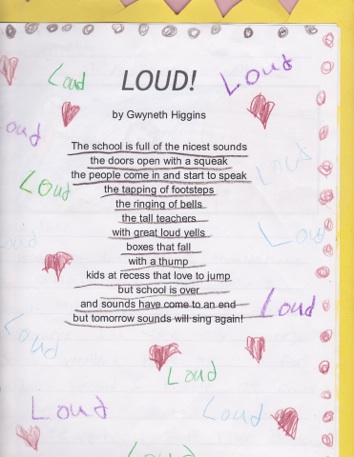 Loud
LOUD!
Loud
by Gwyneth Higgins
oud
The school is full of the nicest sounds
the doors open with a squeak
the people come in and start to speak
Loud
Loud
the tapping of footsteps
the ringing of bells
the tall teachers
with great loud yells
Loud
oud
boxes that fall
with a thump
kids at recess that love to jump
but school is over
and sounds have come to an end
Loud
but tomorrow sounds will sing again!
Loud
Loud
Loud
Loud
Loud